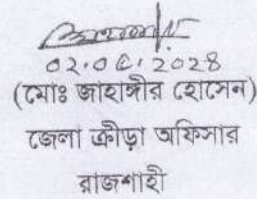 ০২.০৫.২০২৪
(মোঃ জাহাঙ্গীর হোসেন)
জেলা ক্রীড়া অফিসার
রাজশাহী